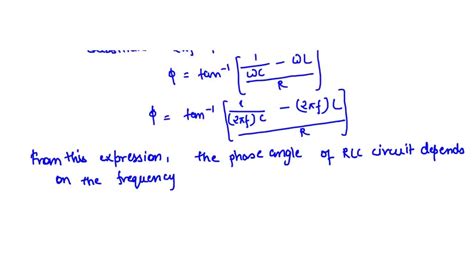 ϕ = tan⁻¹ [ (1/ωC − ωL) / R ]
ϕ = tan⁻¹ [ (1/(2πf)C − (2πf)L) / R ]
From this expression, the phase angle of RLC circuit depends
on the frequency